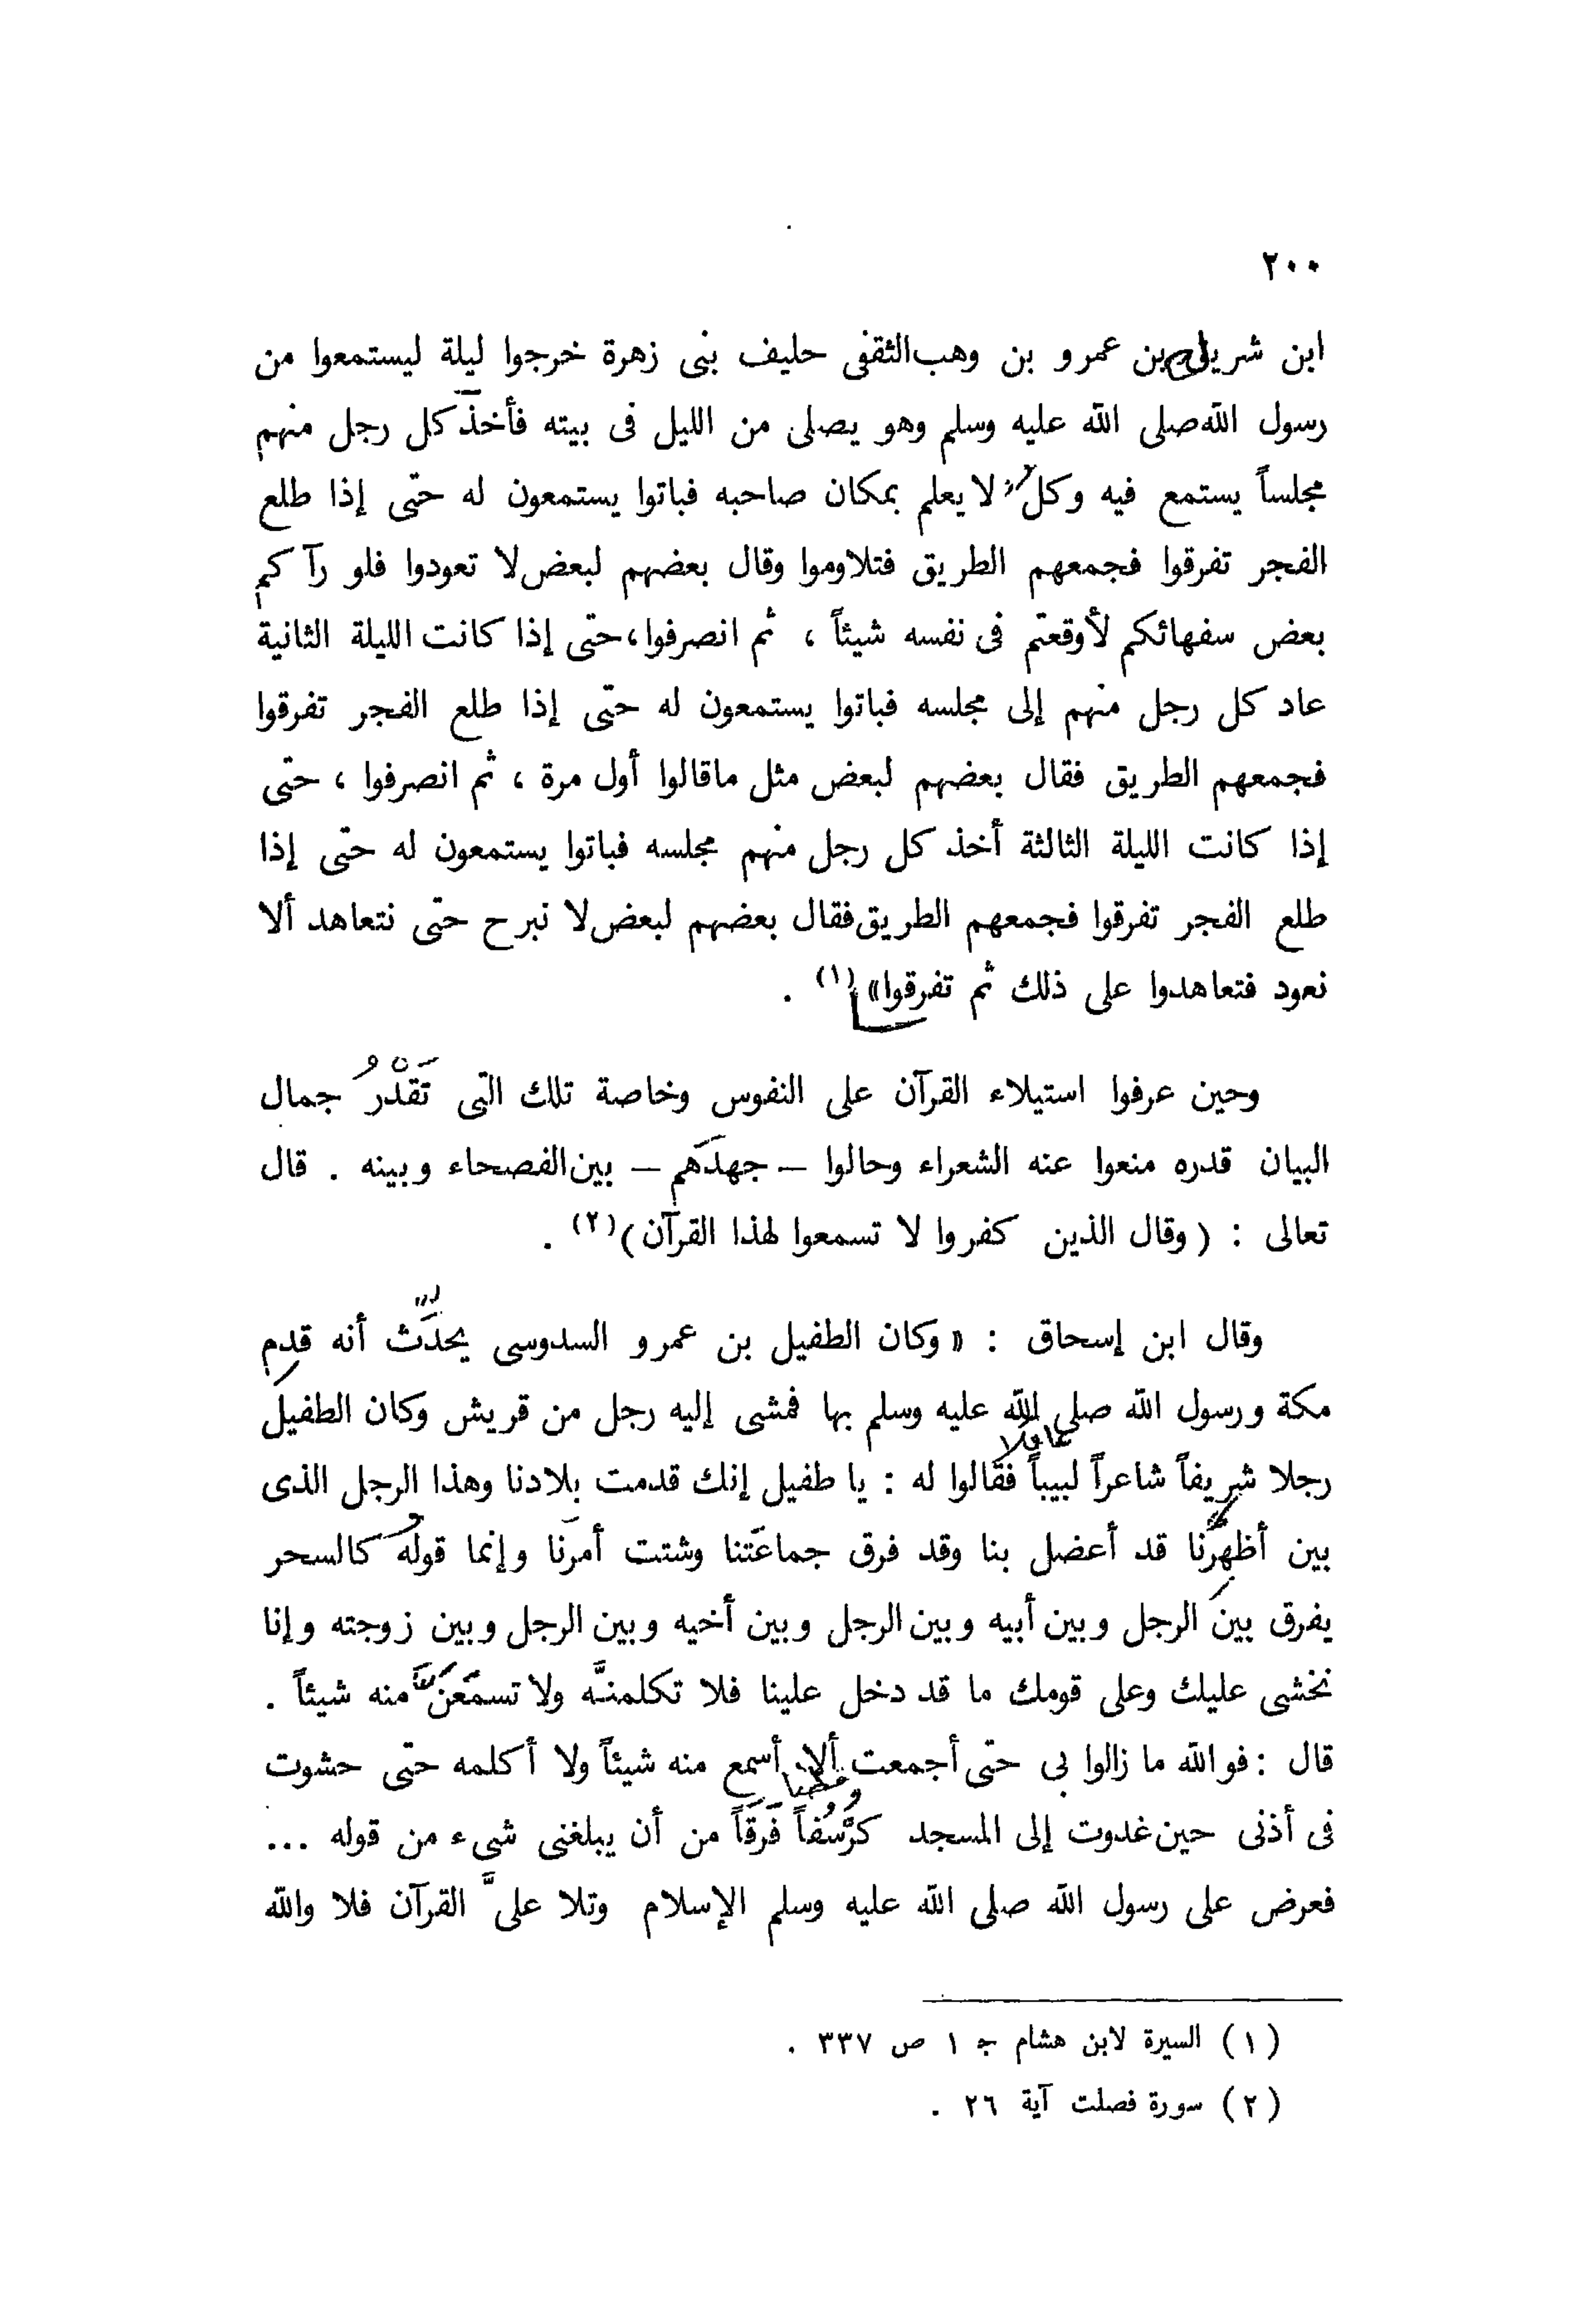 ٢٠٠
ابن شريق بن عمرو بن وهب الثقفى حليف بنى زهرة خرجوا ليلة ليستمعوا من
رسول الله صلى الله عليه وسلم وهو يصلى من الليل فى بيته فأخذ كل رجل منهم
مجلساً يستمع فيه وكل لا يعلم بمكان صاحبه فباتوا يستمعون له حتى إذا طلع
الفجر تفرقوا فجمعهم الطريق فتلاوموا وقال بعضهم لبعض لا تعودوا فلو رآكم
بعض سفهائكم لأوقعتم فى نفسه شيئاً ، ثم انصرفوا ، حتى إذا كانت الليلة الثانية
عاد كل رجل منهم إلى مجلسه فباتوا يستمعون له حتى إذا طلع الفجر تفرقوا
فجمعهم الطريق فقال بعضهم لبعض مثل ماقالوا أول مرة ، ثم انصرفوا ، حتى
إذا كانت الليلة الثالثة أخذ كل رجل منهم مجلسه فباتوا يستمعون له حتى إذا
طلع الفجر تفرقوا فجمعهم الطريق فقال بعضهم لبعض لا نبرح حتى نتعاهد ألا
نعود فتعاهدوا على ذلك ثم تفرقوا» (١) .
وحين عرفوا استيلاء القرآن على النفوس وخاصة تلك التى تَقْدُر جمال
البيان قدره منعوا عنه الشعراء وحالوا – جهدَهم – بين الفصحاء وبينه . قال
تعالى : ( وقال الذين كفروا لا تسمعوا لهذا القرآن ) (٢) .
وقال ابن إسحاق : « وكان الطفيل بن عمرو السدوسى يحدِّث أنه قدِم
مكة ورسول الله صلى الله عليه وسلم بها فمشى إليه رجل من قريش وكان الطفيل
رجلا شريفاً شاعراً لبيباً فقالوا له : يا طفيل إنك قدمت بلادنا وهذا الرجل الذى
بين أظهرنا قد أعضل بنا وقد فرق جماعتنا وشتت أمرنا وإنما قوله كالسحر
يفرق بين الرجل وبين أبيه وبين الرجل وبين أخيه وبين الرجل وبين زوجته وإنا
نخشى عليك وعلى قومك ما قد دخل علينا فلا تكلمنَّه ولا تسمَعَنّ منه شيئاً .
قال : فوالله ما زالوا بى حتى أجمعت ألا أسمع منه شيئاً ولا أكلمه حتى حشوت
فى أذنى حين غدوت إلى المسجد كرسُفاً فَرَقاً من أن يبلغنى شىء من قوله ...
فعرض على رسول الله صلى الله عليه وسلم الإسلام وتلا علىَّ القرآن فلا والله
(١) السيرة لابن هشام ج ١ ص ٣٣٧ .
(٢) سورة فصلت آية ٢٦ .